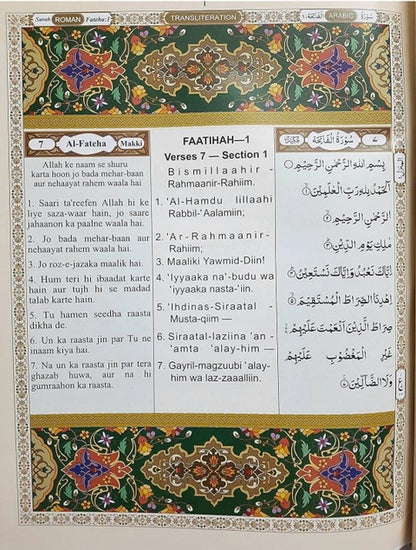 Surah ROMAN Fateha:1
TRANSLITERATION
ARABIC
الفاتحة ١
سورة
7 Al-Fateha Makki
Allah ke naam se shuru
karta hoon jo bada mehar-baan
aur nehaayat rahem waala hai
1. Saari ta'reefen Allah hi ke
liye saza-waar hain, jo saare
jahaanon ka paalne waala hai.
2. Jo bada mehar-baan aur
nehaayat rahem waala hai.
3. Jo roz-e-jazaka maalik hai.
4. Hum teri hi ibaadat karte
hain aur tujh hi se madad
talab karte hain.
5. Tu hamen seedha raasta
dikha de.
6. Un ka raasta jin par Tu ne
inaam kiya hai.
7. Na un ka raasta jin par tera
ghazab huwa, aur na hi
gumraahon ka raasta.
FAATIHAH—1
Verses 7 — Section 1
Bismillaahir -
Rahmaanir-Rahiim.
1. 'Al-Hamdu lillaahi
Rabbil-'Aalamiin;
2. 'Ar-Rahmaanir-
Rahiim;
3. Maaliki Yawmid-Diin!
4. 'Iyyaaka na'-budu wa
'iyyaaka nasta-'iin.
5. 'Ihdinas-Siraatal -
Musta-qiim —
6. Siraatal-laziina 'an -
'amta 'alay-him —
7. Gayril-magzuubi 'alay-
him wa laz-zaaalliin.
٧ سُوْرَةُ الْفَاتِحَةِ مَكِّيَّةٌ
بِسْمِ اللهِ الرَّحْمٰنِ الرَّحِيْمِ
اَلْحَمْدُ لِلّٰهِ رَبِّ الْعٰلَمِيْنَ ۝١
الرَّحْمٰنِ الرَّحِيْمِ ۝٢
مٰلِكِ يَوْمِ الدِّيْنِ ۝٣
اِيَّاكَ نَعْبُدُ وَاِيَّاكَ نَسْتَعِيْنُ ۝٤
اِهْدِنَا الصِّرَاطَ الْمُسْتَقِيْمَ ۝٥
صِرَاطَ الَّذِيْنَ اَنْعَمْتَ عَلَيْهِمْ ۝٦
غَيْرِ الْمَغْضُوْبِ عَلَيْهِمْ
وَلَا الضَّآلِّيْنَ ۝٧